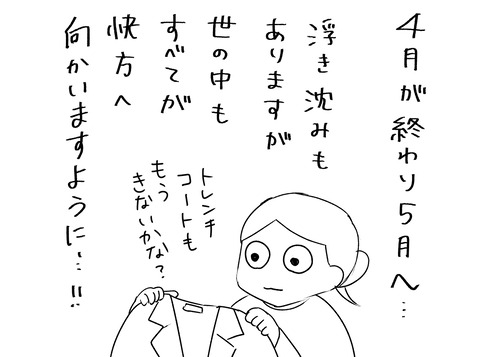 4月が終わり5月へ…
浮き沈みも
ありますが
世の中も
すべてが
快方へ
向かいますように…!!
トレンチ
コートも
もう
きないかな?